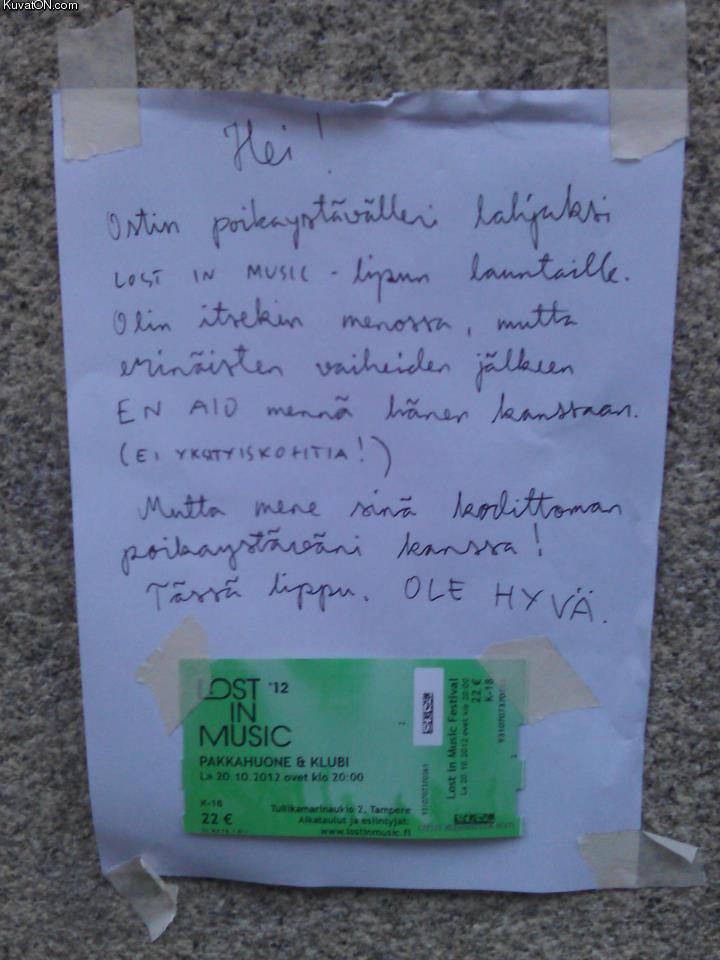 KuvatON.com
Hei!
Ostin poikaystävälleni lahjaksi
LOST IN MUSIC - lipun launtaille.
Olin itsekin menossa, mutta
erinäisten vaiheiden jälkeen
EN AIO mennä hänen kanssaan.
(EI YKSITYISKOHTIA!)
Mutta mene sinä kodittoman
poikaystäväni kanssa!
Tässä lippu. OLE HYVÄ.
LOST '12
IN
MUSIC
PAKKAHUONE & KLUBI
La 20.10.2012 ovet klo 20:00
K-18
22 €
Tullikamarinaukio 2, Tampere
Aikataulut ja esiintyjät:
www.lostinmusic.fi
Lost in Music Festival
La 20.10.2012 ovet klo 20:00
22 €
K-18